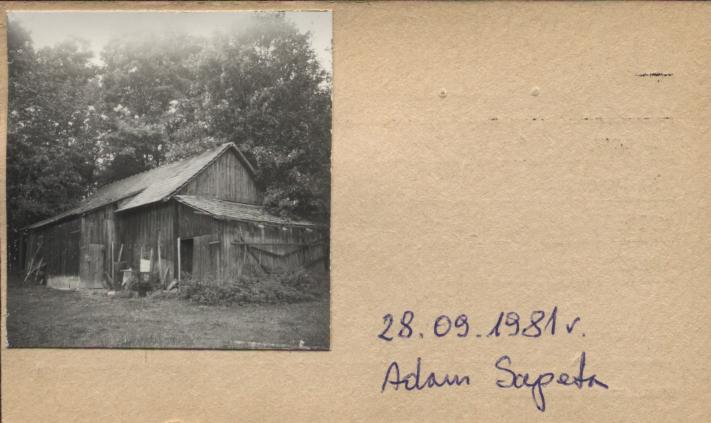 28.09.1981 r.
Adam Sapeta